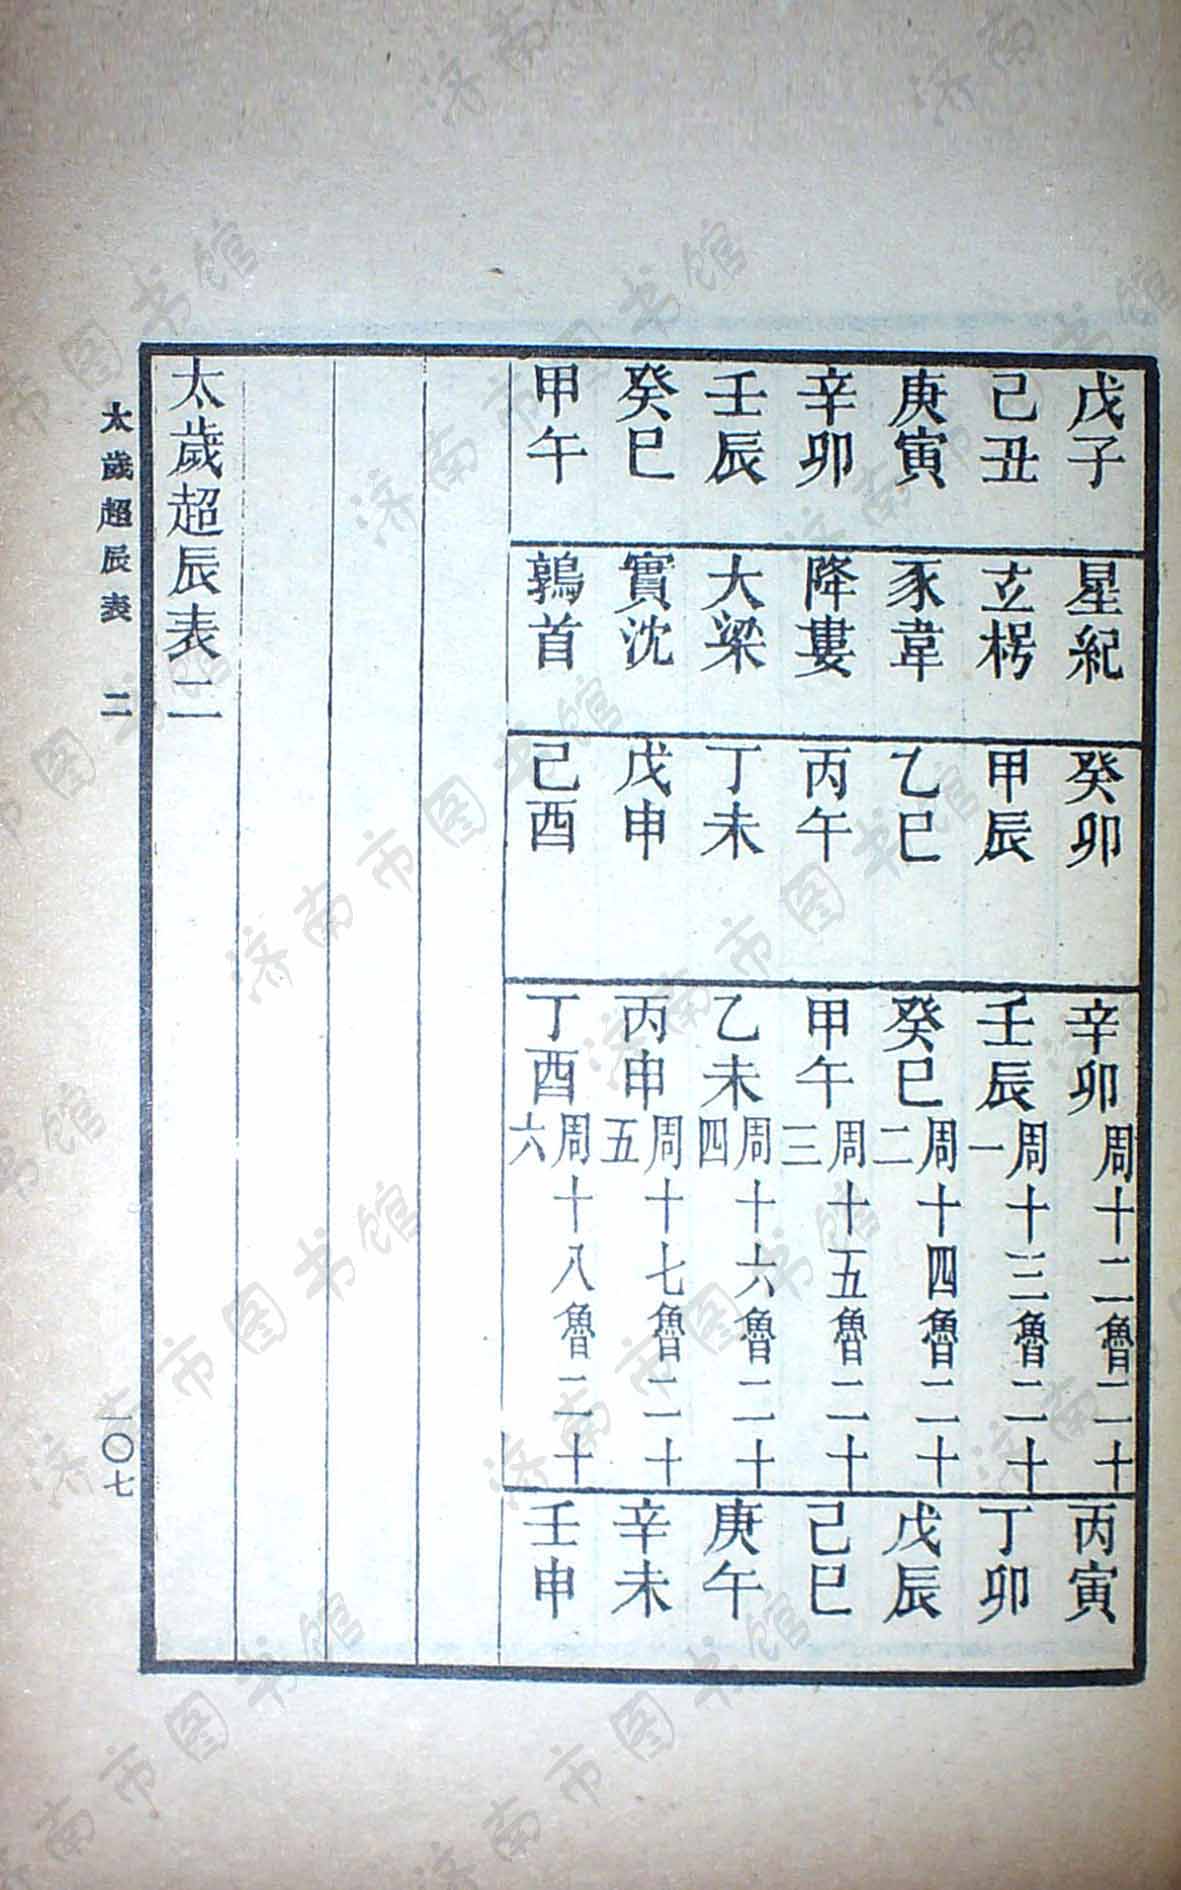 戊子 星紀 癸卯 辛卯 周十二魯二十 丙寅
己丑 立枵 甲辰 壬辰 周十三魯二十一 丁卯
庚寅 豕韋 乙巳 癸巳 周十四魯二十二 戊辰
辛卯 降婁 丙午 甲午 周十五魯二十三 己巳
壬辰 大梁 丁未 乙未 周十六魯二十四 庚午
癸巳 實沈 戊申 丙申 周十七魯二十五 辛未
甲午 鶉首 己酉 丁酉 周十八魯二十六 壬申
太歲超辰表二
太歲超辰表 二 一〇七
济南市图书馆